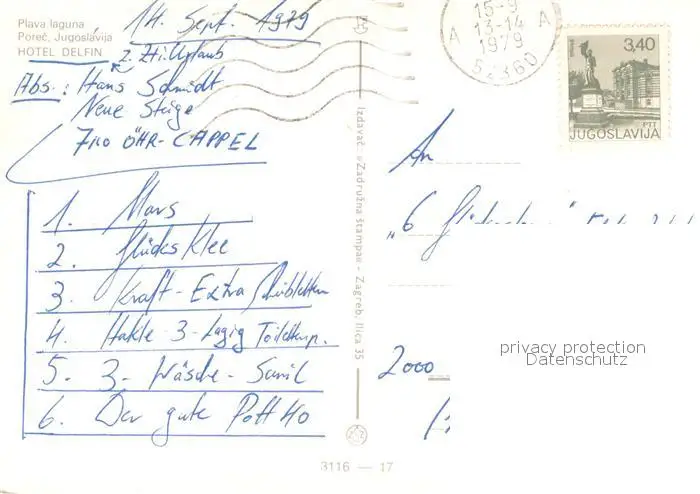 14. Sept. 1979
Plava laguna
Poreč, Jugoslavija
HOTEL DELFIN
z. Zt. Urlaub
Abs.: Hans Schmidt
Neue Steige
7110 ÖHR-CAPPEL
1. Mars
2. Glücks Klee
3. Kraft - Extra Scheibletten
4. Hakle - 3 - lagig Toilettenp.
5. 3 - Wäsche - Sanil
6. Der gute Pott 40
Izdavač: »Zadružna štampa« - Zagreb, Ilica 35
3116 — 17
15-9
13-14
1979
A A
52360
3,40
PTT
JUGOSLAVIJA
An
„6
2000
privacy protection
Datenschutz